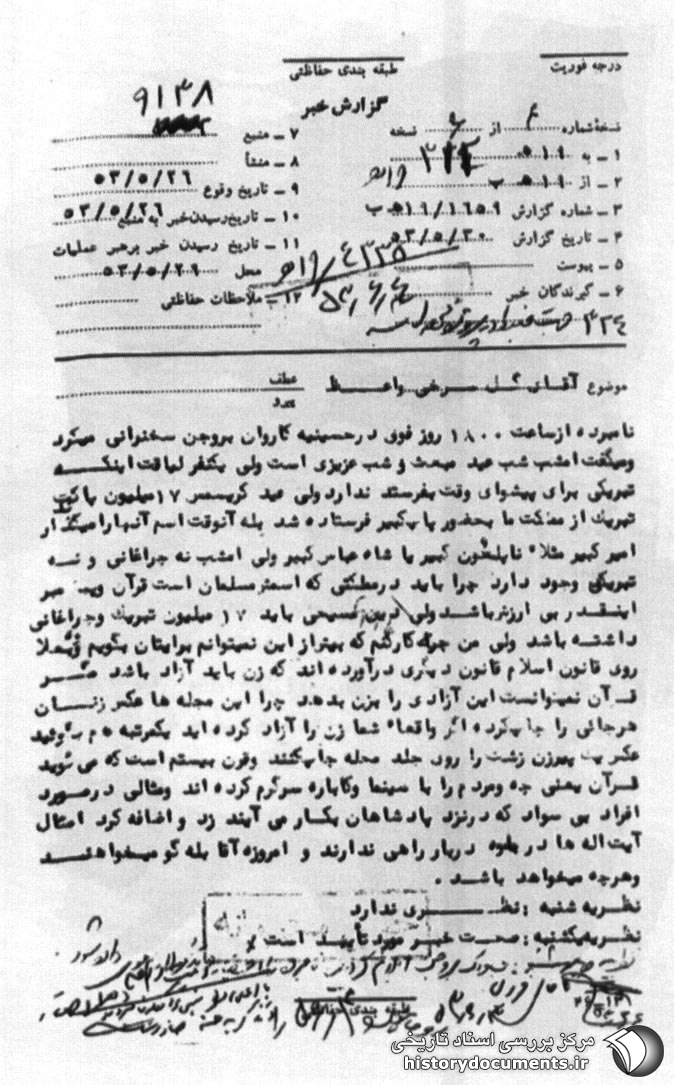 درجه فوریت
طبقه بندی حفاظتی
گزارش خبر
نسخهٔ شماره ۴ از ۶ نسخه
۱ ـ به ۵۱۹ ۳۲۴
۲ ـ از ۵۱۹ ب ۱۹ ه
۳ ـ شماره گزارش ۵۱۹/۱۶۵۹ ب
۴ ـ تاریخ گزارش ۵۳/۵/۳۰
۵ ـ پیوست
۶ ـ گیرندگان خبر
۹۱۳۸
۷ ـ منبع
۸ ـ منشأ
۹ ـ تاریخ وقوع ۵۳/۵/۲۶
۱۰ ـ تاریخ رسیدن خبر به منبع ۵۳/۵/۲۶
۱۱ ـ تاریخ رسیدن خبر برهبر عملیات
محل ۵۳/۵/۲۹
۱۲ ـ ملاحظات حفاظتی
موضوع آقای گل سرخی واعظ
عطف
پیرو
نامبرده از ساعت ۱۸۰۰ روز فوق در حسینیه کاروان بروجن سخنرانی میکرد
ومیگفت امشب شب عید مبعث و شب عزیزی است ولی یکنفر لیاقت اینکه
تبریکی برای پیشوای وقت بفرستد ندارد ولی عید کریسمس ۱۷ میلیون پاکت
تبریك از مملکت ما بحضور پاپ کبیر فرستاده شد بله آنوقت اسم آنها را میگذار ند
امیر کبیر مثلا" ناپلئون کبیر یا شاه عباس کبیر ولی امشب نه چراغانی و نه
تبریکی وجود دارد چرا باید در مملکتی که اسمش مسلمان است قرآن وپیغمبر
اینقدر بی ارزش باشد ولی دین مسیحی باید ۱۷ میلیون تبریك وچراغانی
داشته باشد ولی من چه کار کنم که بهتر از این نمیتوانم برایتان بگویم فعلا
روی قانون اسلام قانون دیگری درآورده اند که زن باید آزاد باشد مگر
قرآن نمیتوانست این آزادی را بزن بدهد چرا این مجله ها عکس زنان
هرجائی را چاپ کرده اگر واقعا" شما زن را آزاد کرده اید یکمرتبه هم بگوئید
عکس یك پیرزن زشت را روی جلد مجله چاپ کنند وقرن بیستم است که می گوید
قرآن یعنی چه ومردم را با سینما وکاباره سرگرم کرده اند ومثالی در مورد
افراد بی سواد که در نزد پادشاهان بکار می آیند زد و اضافه کرد امثال
آیت اله ها در جلوه دربار راهی ندارند و امروزه آقا بله گو میخواهند
وهرچه میخواهد باشد .
نظریه شنبه : نظری ندارد
نظریه یکشنبه : صحت خبر مورد تأیید است .
طبقه بندی حفاظتی
مرکز بررسی اسناد تاریخی
historydocuments.ir